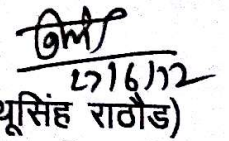 27/6/12
थूसिंह राठौड)